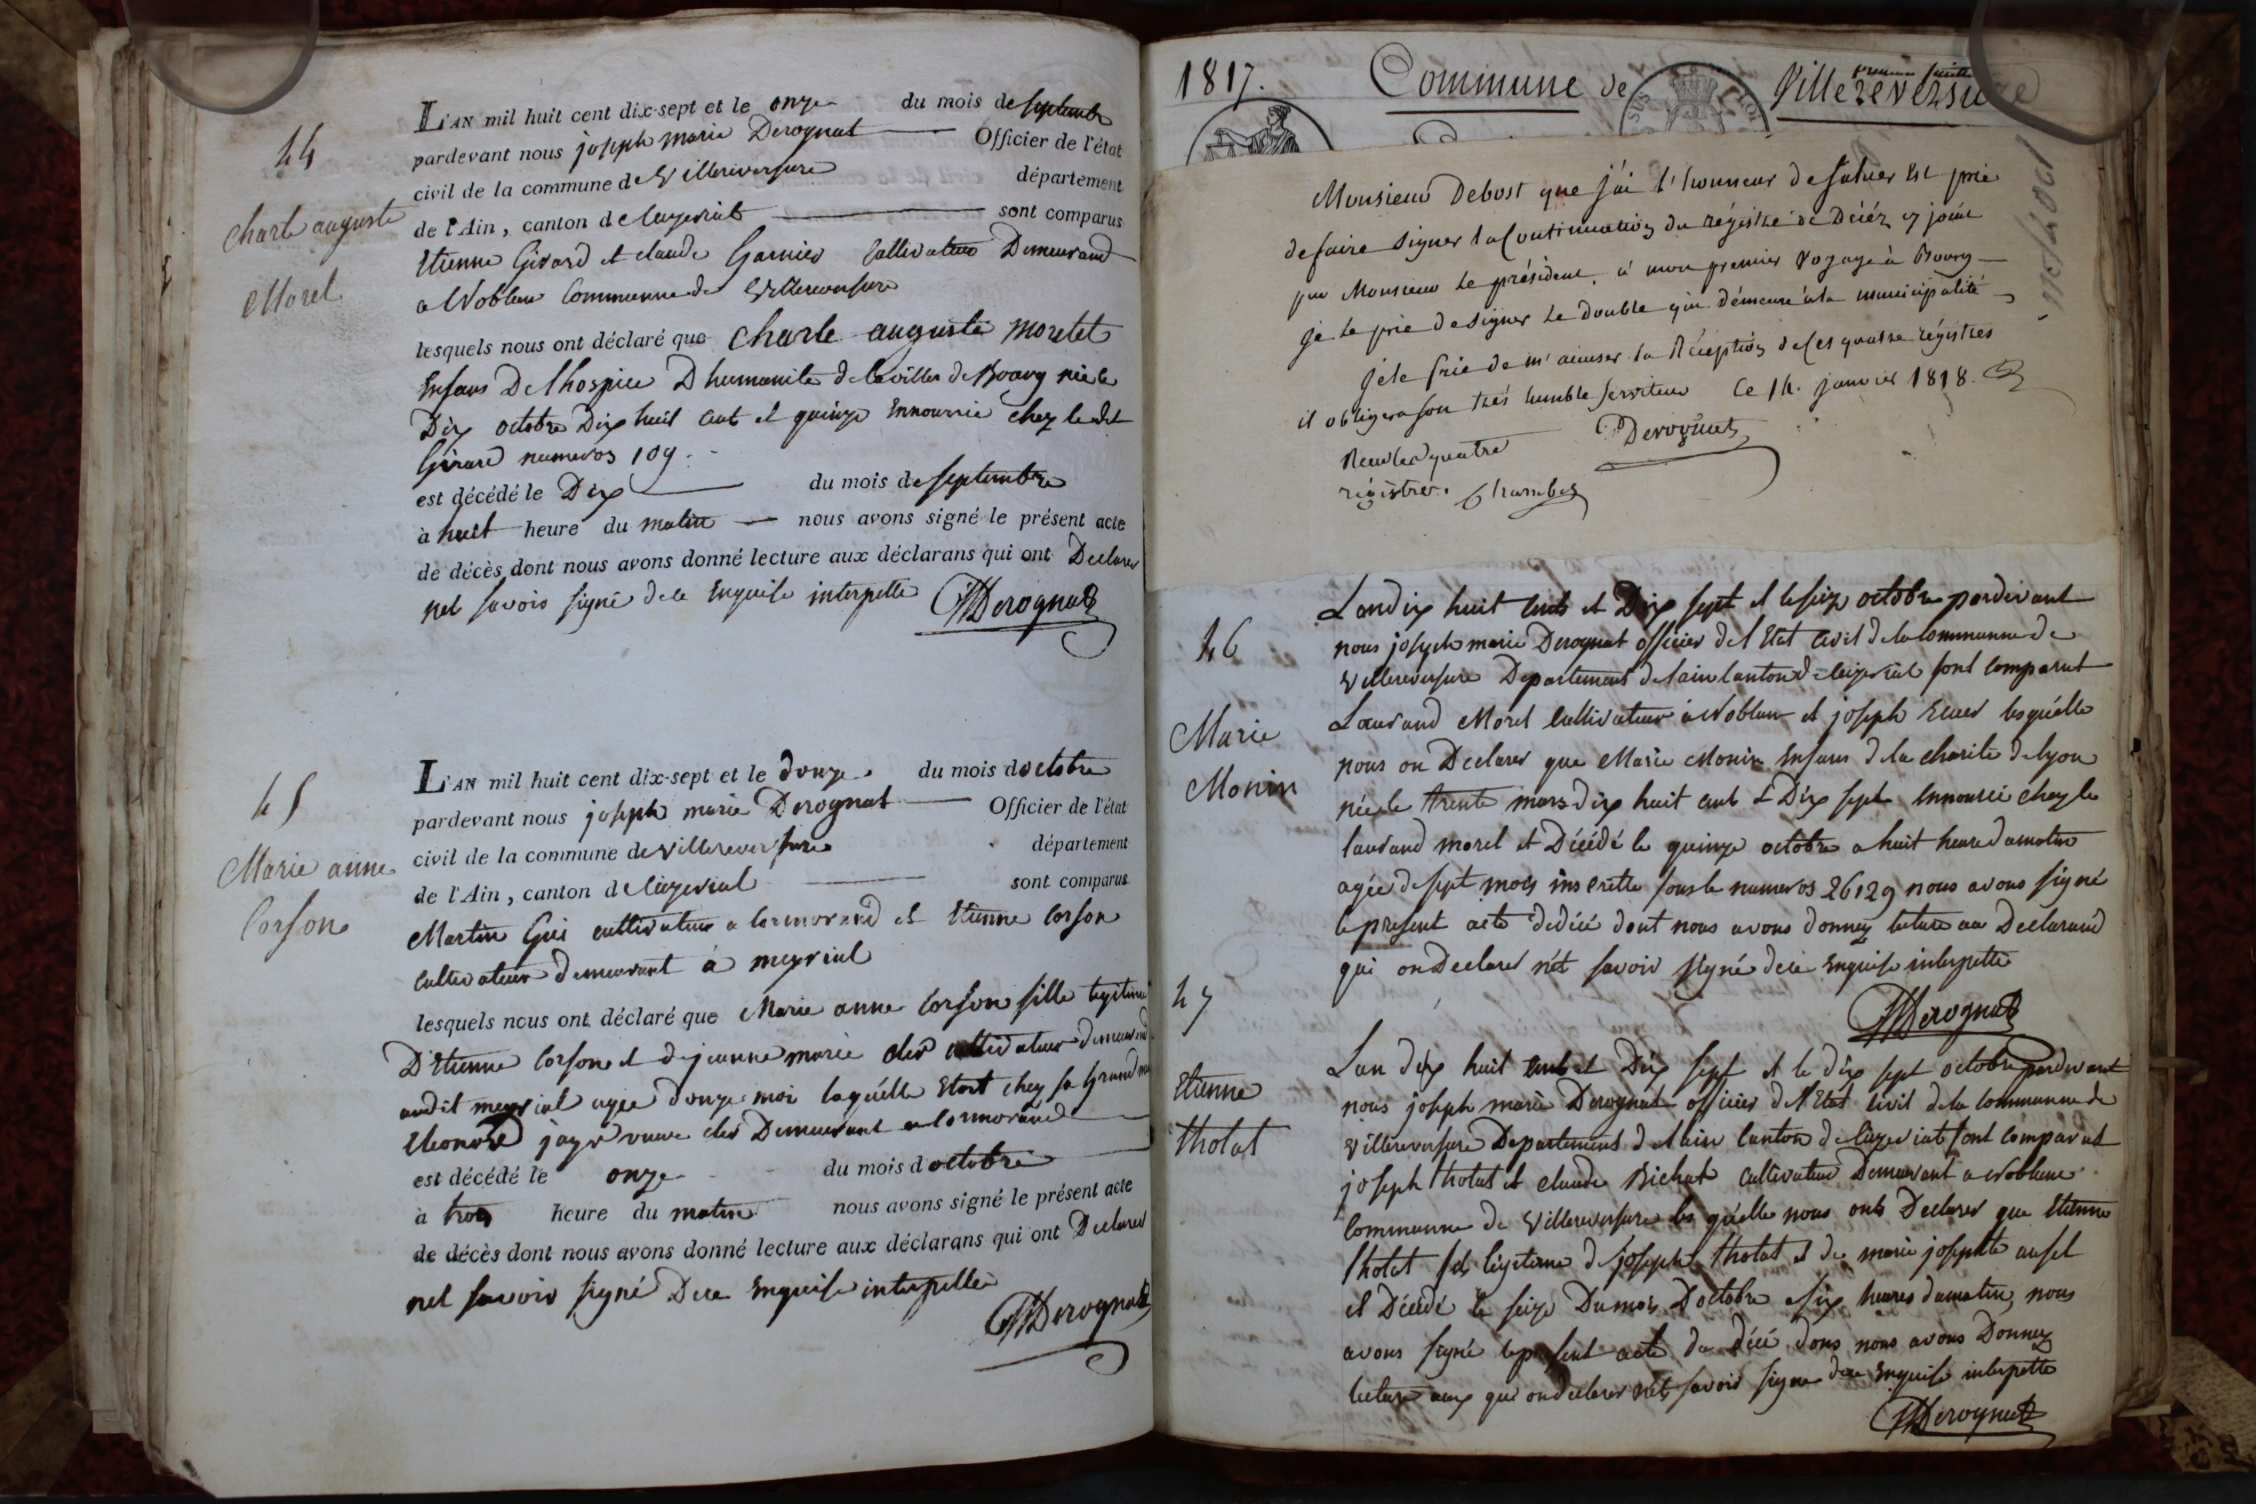 44
Charle auguste
Morel
L'AN mil huit cent dix-sept et le onze du mois de septembre
pardevant nous joseph marie Derognat Officier de l'état
civil de la commune de Villereversure département
de l'Ain, canton de Ceyzeriat sont comparus
Etienne Girard et claude Garnier Cultivateur Demeurand
a Noblens Commune de Villereversure
lesquels nous ont déclaré que Charle auguste moretet
Enfans De lhospice Dhumanite de la ville de Bourg née le
Dix octobre Dix huit cent et quinze Ennourrie chez le dit
Girard numeros 109.
est décédé le Dix du mois de septembre
à huit heure du matin nous avons signé le présent acte
de décès dont nous avons donné lecture aux déclarans qui ont Declarer
net savoir signé de ce Enquise interpette
JMDerognat
45
Marie anne
Corson
L'AN mil huit cent dix-sept et le douze du mois doctobre
pardevant nous joseph marie Derognat Officier de l'état
civil de la commune de Villereversure département
de l'Ain, canton de Ceyzeriat sont comparus
Martin Gui cultivateur a Cormorand et Etienne Corson
Cultivateur demeurant à meyriat
lesquels nous ont déclaré que Marie anne Corson fille legitime
D'Etienne Corson et de jeanne marie cler cultivateur demeurand
audit meyriat agée douze moi laquélle Etoit chez sa Grand
Eleonore jayr veuve cler Demeurant a Cormorand
est décédé le onze du mois doctobre
à trois heure du matin nous avons signé le présent acte
de décès dont nous avons donné lecture aux déclarans qui ont Declarer
net savoir signé De ce Enquise interpellée
JMDerognat
1817. Commune de Villereversure
premier feuillet
Monsieur Debost que j'ai l'honneur de saluer Est prié
de faire signer la Continuation du régistre de Décéz cy joint
par Monsieur Le président, à mon premier voyage à Bourg
je le prie de signer Le double qui démeure à la municipalité
je le prie de m'accuser la Réception de Ces quatre régistres
il obligera son très humble serviteur Ce 14. janvier 1818.
Derognat
Reçu les quatre
régistres. Chambos
46
Marie
Monin
Lan dix huit cents et Dix sept et le seize octobre pardevant
nous joseph marie Derognat officier de l'Etat Civil de la Commune de
Villereversure Departement de lain Canton de Ceyzeriat sont Comparut
Laurand Morel Cultivateur a Noblens et joseph lesquélle
nous on Declarer que Marie Monin Enfans de la charite de lyon
née le trente mars dix huit cent et Dix sept Ennourrie chez le
laurand morel et Décédé le quinze octobre a huit heure du matin
agée de sept mois inscritte sous le numeros 26129 nous avons signé
le present acte dedécé dont nous avons donnez lecture au Declarand
qui on Declarer nét savoir signé de ce Enquise interpette
JMDerognat
47
Etienne
tholat
Lan dix huit cent et Dix sept et le dix sept octobre pardevant
nous joseph marie Derognat officier de l'Etat civil de la Commune de
Villereversure Departement de lain Canton de Ceyzeriat sont Comparut
joseph tholat et claude Bichat Cultivateur Demeurant a Noblens
Commune de Villereversure lesquélle nous ont Declarer que Etienne
tholat fils légitime de joseph tholat et de marie josephte ausel
et Décédé le seize Du mois D'octobre a six heures du matin, nous
avons signé le présent acte de décé dont nous avons Donnez
lecture aux qui on declarer nét savoir signé de ce Enquise interpette
JMDerognat